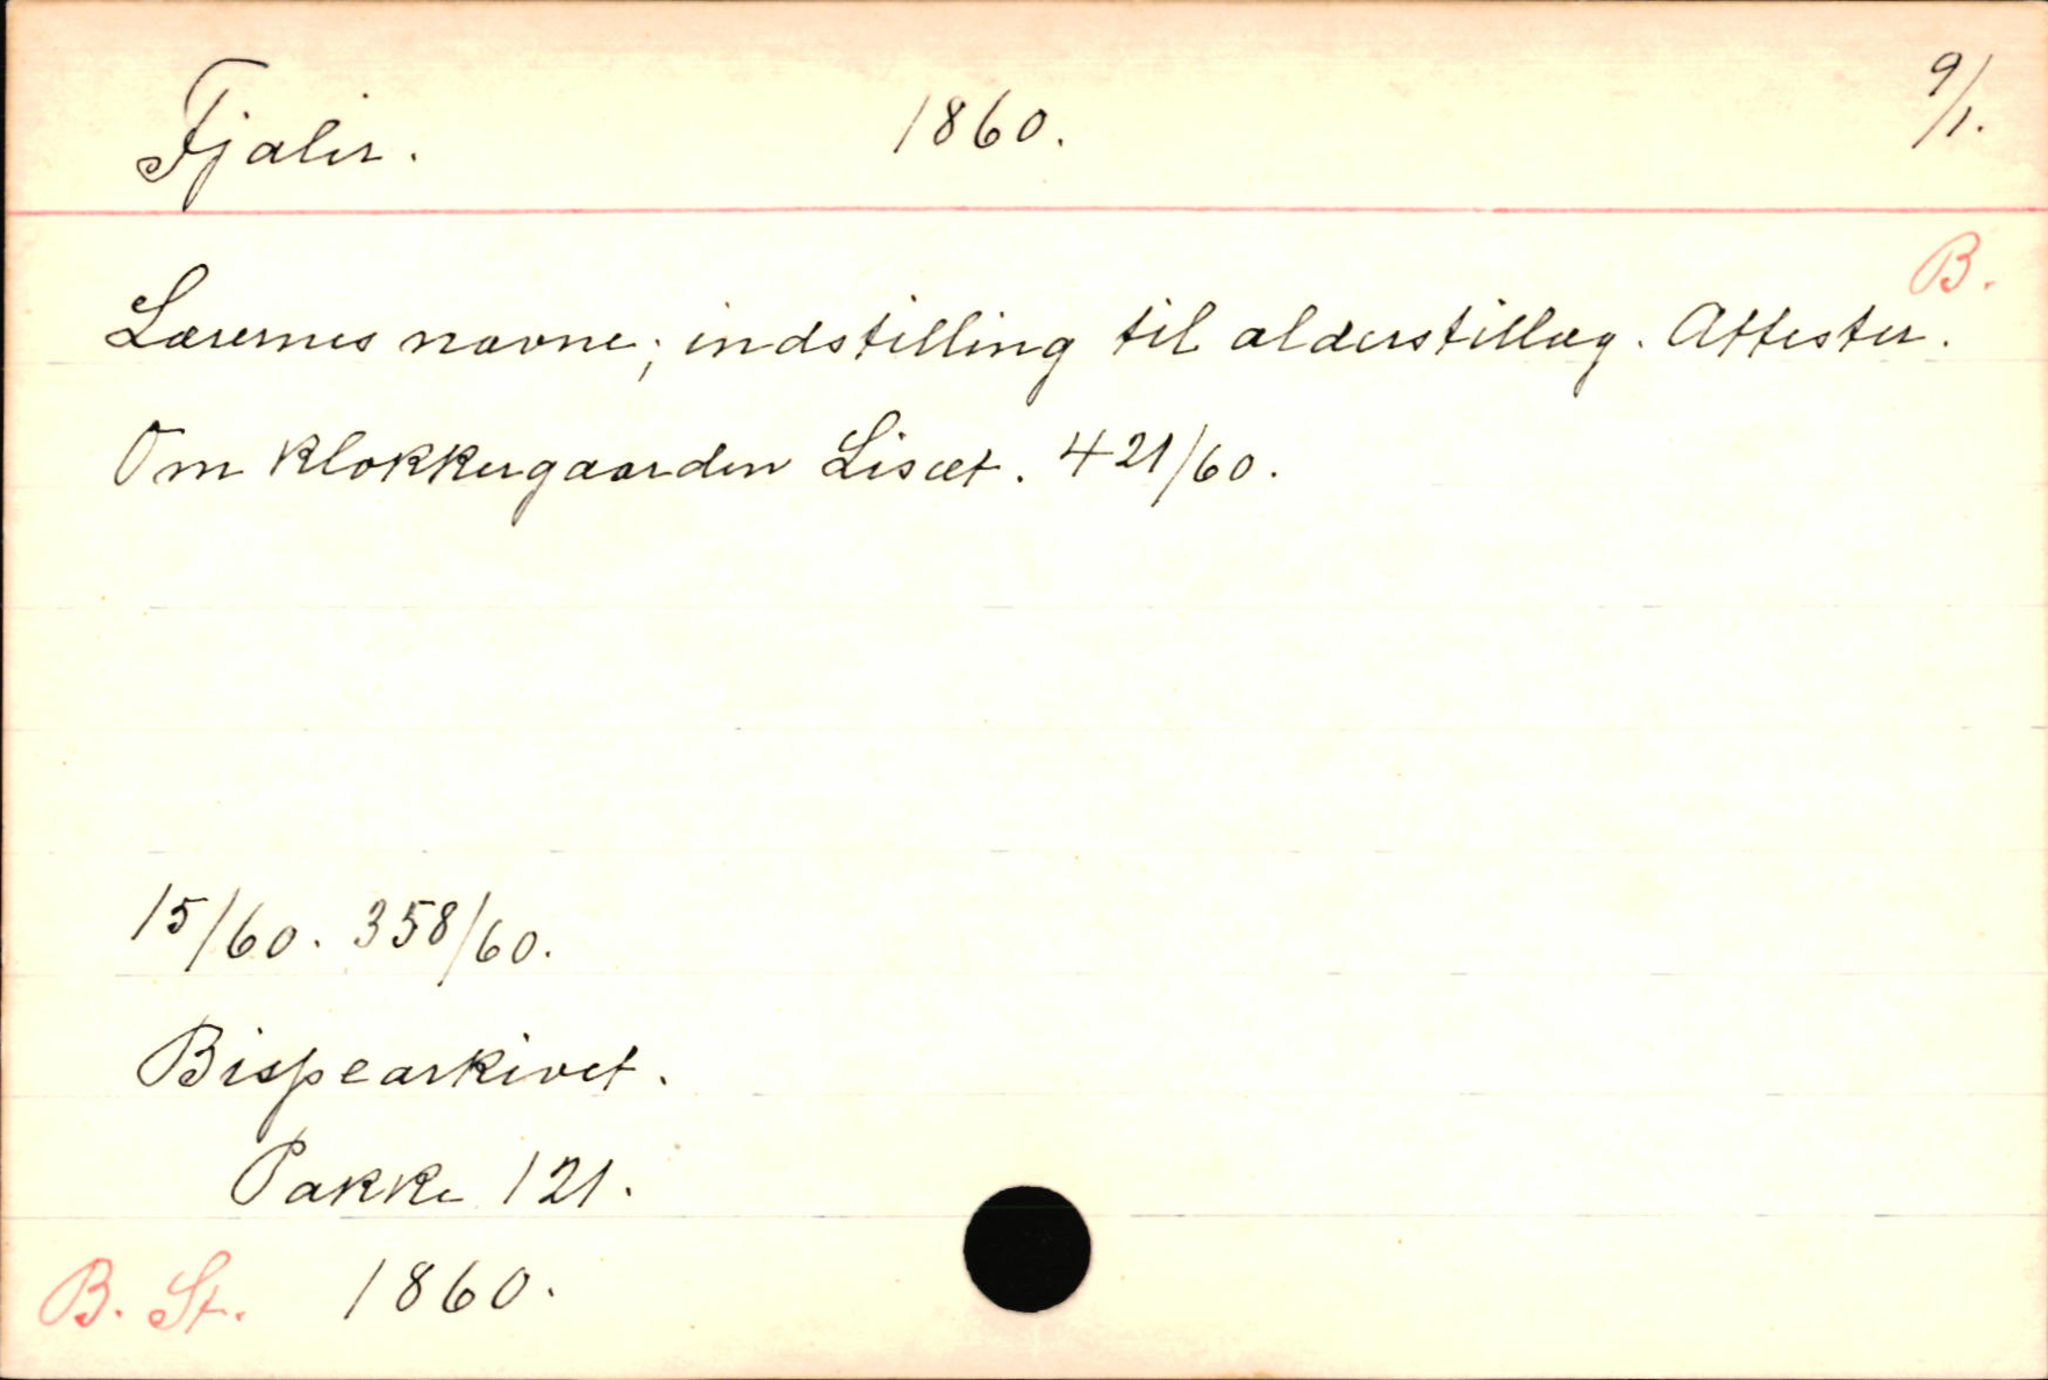 Fjaler. 1860. 9/1.
B.
Lærernes navne; indstilling til alderstillæg. Attester.
Om klokkergaarden Lisæt. 421/60.
15/60. 358/60.
Bispearkivet.
Pakke 121.
B. St. 1860.